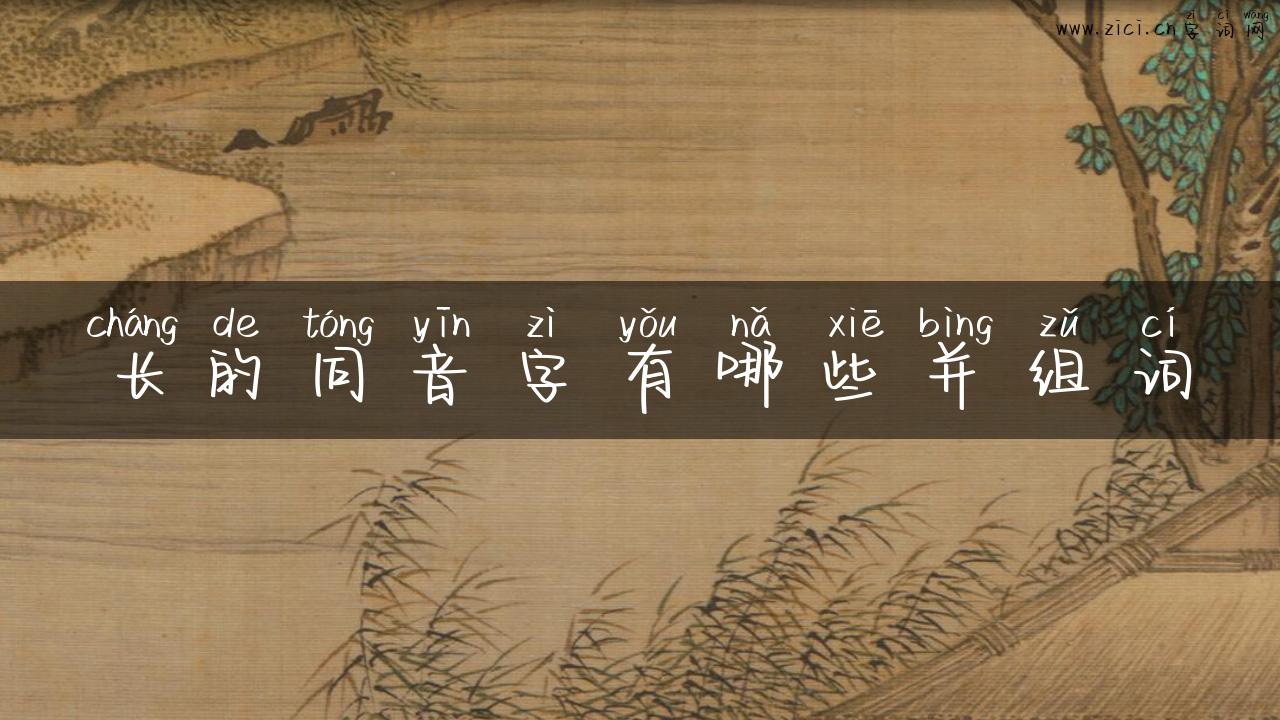 zì cí wǎng
www.zici.cn字词网
cháng de tóng yīn zì yǒu nǎ xiē bìng zǔ cí
长的同音字有哪些并组词